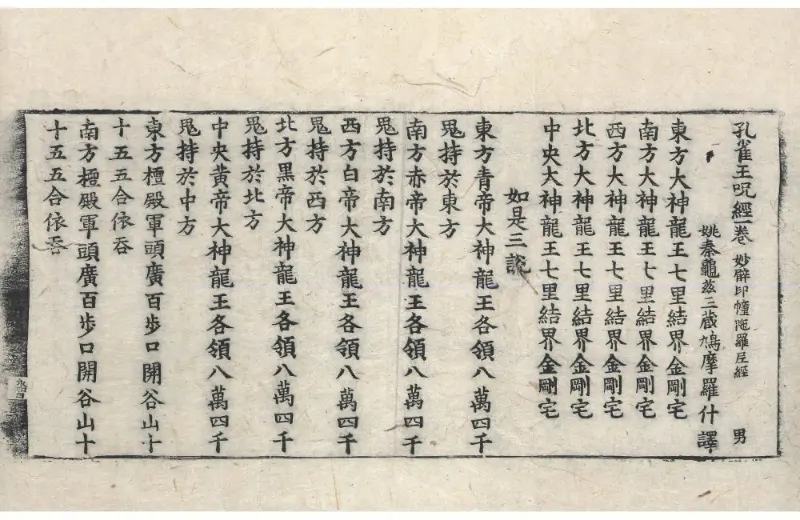 孔雀王呪經一卷 妙臂印幢陁羅尼經 男
姚秦龜茲三藏鳩摩羅什譯
東方大神龍王七里結界金剛宅
南方大神龍王七里結界金剛宅
西方大神龍王七里結界金剛宅
北方大神龍王七里結界金剛宅
中央大神龍王七里結界金剛宅
如是三說
東方青帝大神龍王各領八萬四千
鬼持於東方
南方赤帝大神龍王各領八萬四千
鬼持於南方
西方白帝大神龍王各領八萬四千
鬼持於西方
北方黑帝大神龍王各領八萬四千
鬼持於北方
中央黃帝大神龍王各領八萬四千
鬼持於中方
東方檀殿軍頭廣百步口開谷山十
十五五合依吞
南方檀殿軍頭廣百步口開谷山十
十五五合依吞